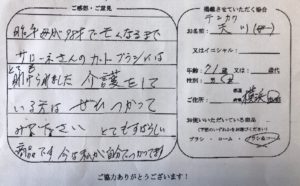 ご感想・ご意見
昨年母が98才で亡くなるまで
サローネさんのカットブラシには
とても助けられました 介護をして
いる方は ぜひつかって
みて下さい とてもすばらしい
商品です 今は私が自分でつかってます
掲載させていただく場合
お名前：
又はイニシャル：
年齢（71歳 又は　　歳代
性別：
ご住所： 横浜
お使いいただいている商品
（下記のいずれかをお選びください）
ブラシ ・ コーム ・
ご協力ありがとうございます！